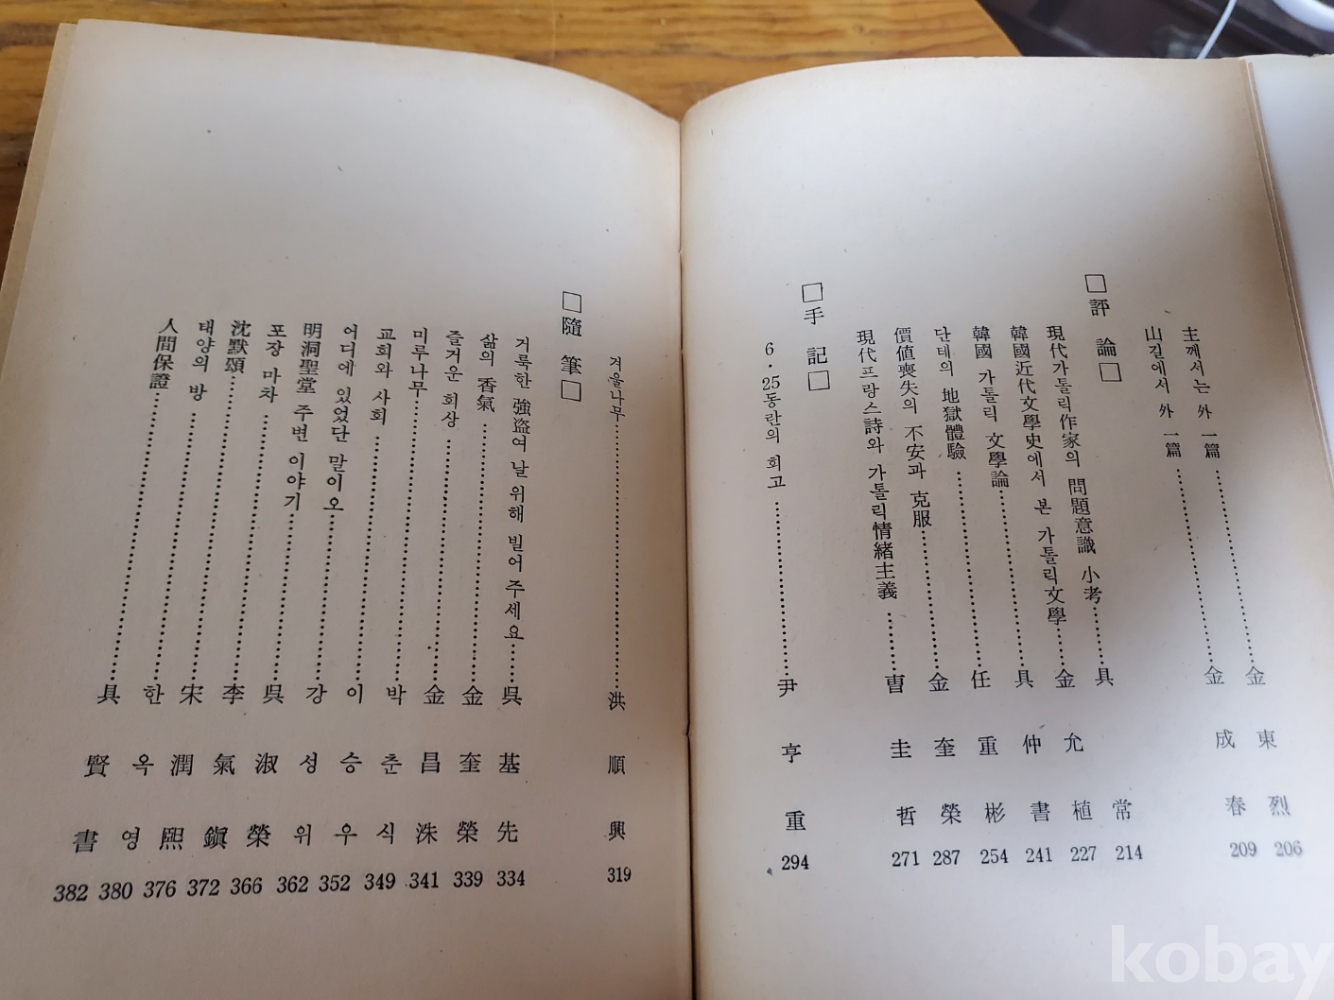 主께서는 外 一篇……金 東 烈 206
山길에서 外 一篇……金 成 春 209
□評 論□
現代가톨릭作家의 問題意識 小考……具 常 214
韓國近代文學史에서 본 가톨릭文學……金 允 植 227
韓國 가톨릭 文學論……具 仲 書 241
단테의 地獄體驗……任 重 彬 254
價値喪失의 不安과 克服……金 奎 榮 287
現代프랑스詩와 가톨릭情緖主義……曺 圭 哲 271
□手 記□
6·25동란의 회고……尹 亨 重 294
겨울나무……洪 順 興 319
□隨 筆□
거룩한 強盜여 날 위해 빌어 주세요……吳 基 先 334
삶의 香氣……金 奎 榮 339
즐거운 회상……金 昌 洙 341
미루나무……박 춘 식 349
교회와 사회……이 승 우 352
어디에 있었단 말이오……강 성 위 362
明洞聖堂 주변 이야기……吳 淑 榮 366
포장 마차……李 氣 鎭 372
沈默頌……宋 潤 熙 376
태양의 방……한 옥 영 380
人間保證……具 賢 書 382
kobay